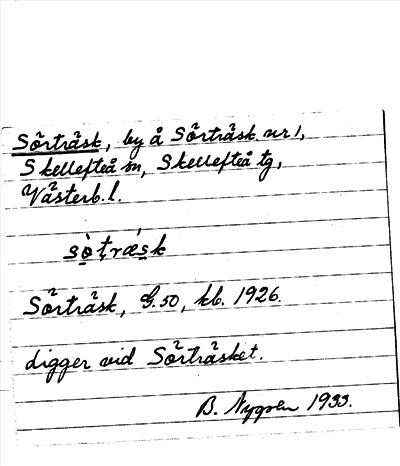 Sörträsk, by å Sörträsk nr 1,
Skellefteå sn, Skellefteå tg,
Västerb. l.
sò̱ṭrǽs̱k
Sörträsk, G.50, kb. 1926.
digger vid Sörträsket.
B. Nygren 1933.